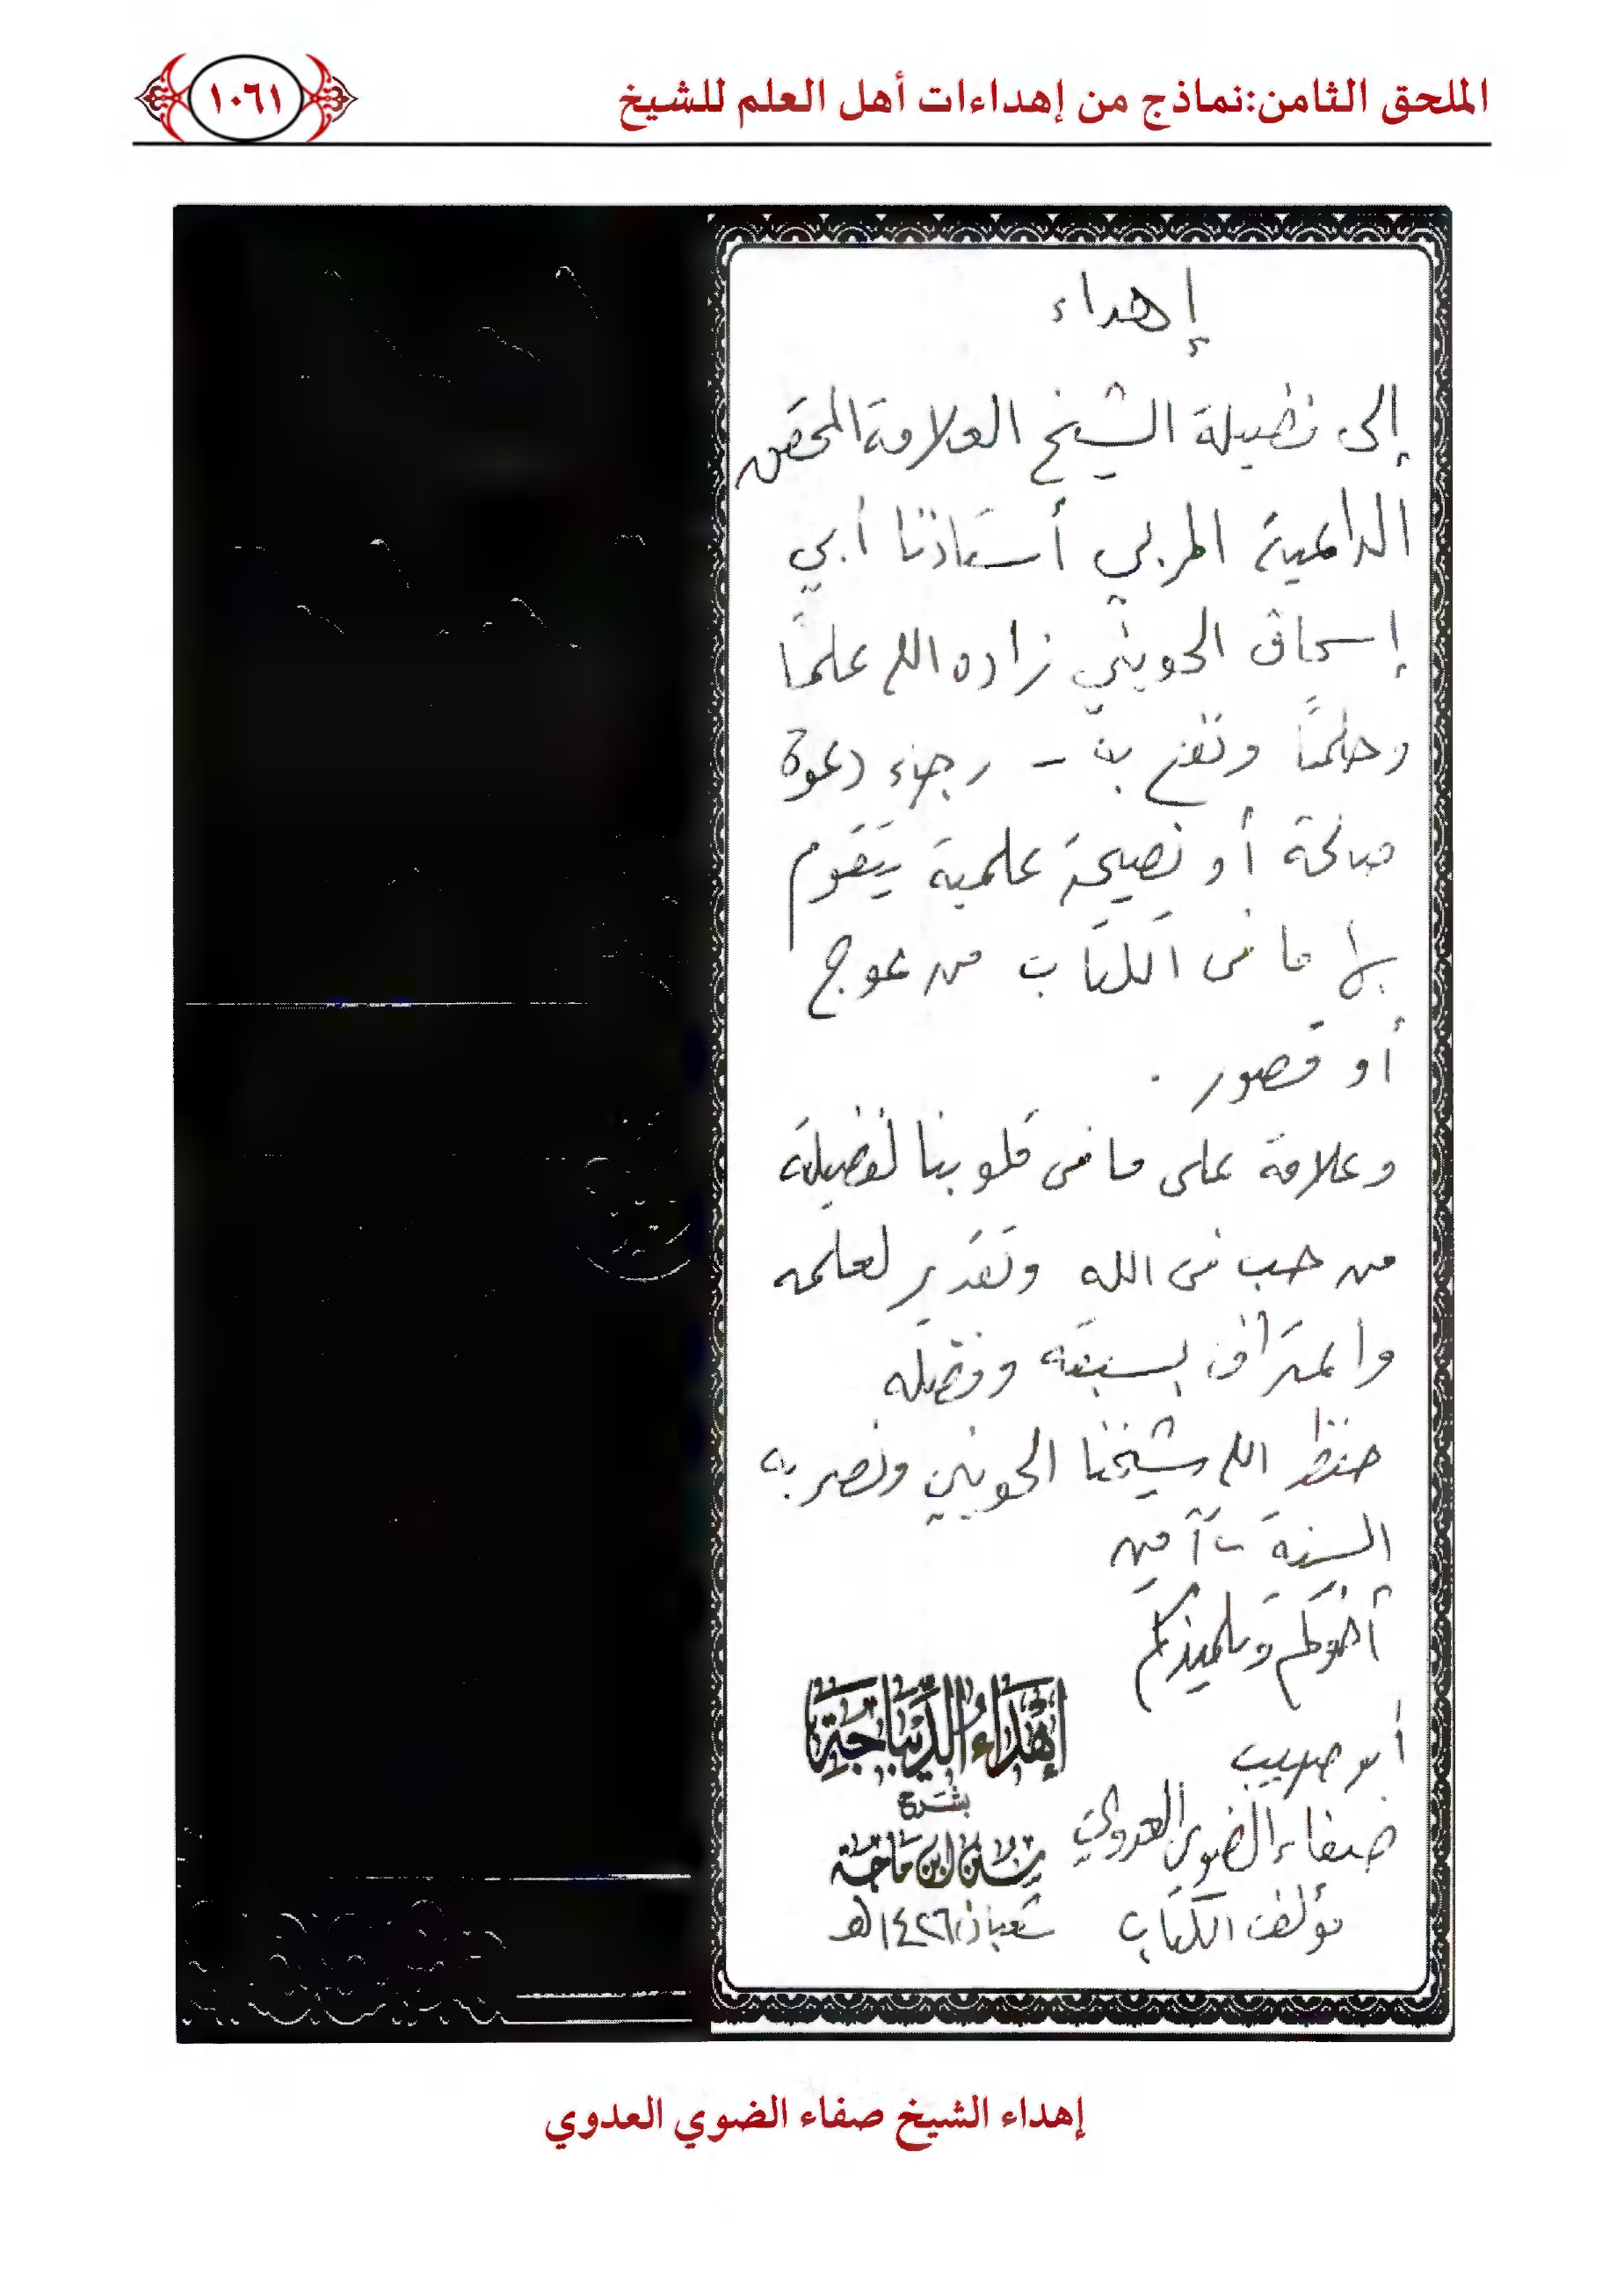 الملحق الثامن:نماذج من إهداءات أهل العلم للشيخ
١٠٦١
إهداء
إلى فضيلة الشيخ العلامة المحقق
الداعية المربي أستاذنا أبي
إسحاق الحويني زاده الله علمًا
وحلمًا ونفع به - رجاء دعوة
صالحة أو نصيحة علمية يتقوم
بها ما في الكتاب من عوج
أو قصور .
وعلامة على ما في قلوبنا لفضيلته
من حب في الله وتقدير لعلمه
واعتراف بسبقه وفضله
حفظ الله شيخنا الحويني ونصر به
السنة آمين
أخوكم وتلميذكم
أبو صهيب
صفاء الضوي العدوي
مؤلف الكتاب
إهْدَاءُ الدِّيبَاجَةِ
بشرح
سنن ابن ماجة
شعبان ١٤٢٦هـ
إهداء الشيخ صفاء الضوي العدوي